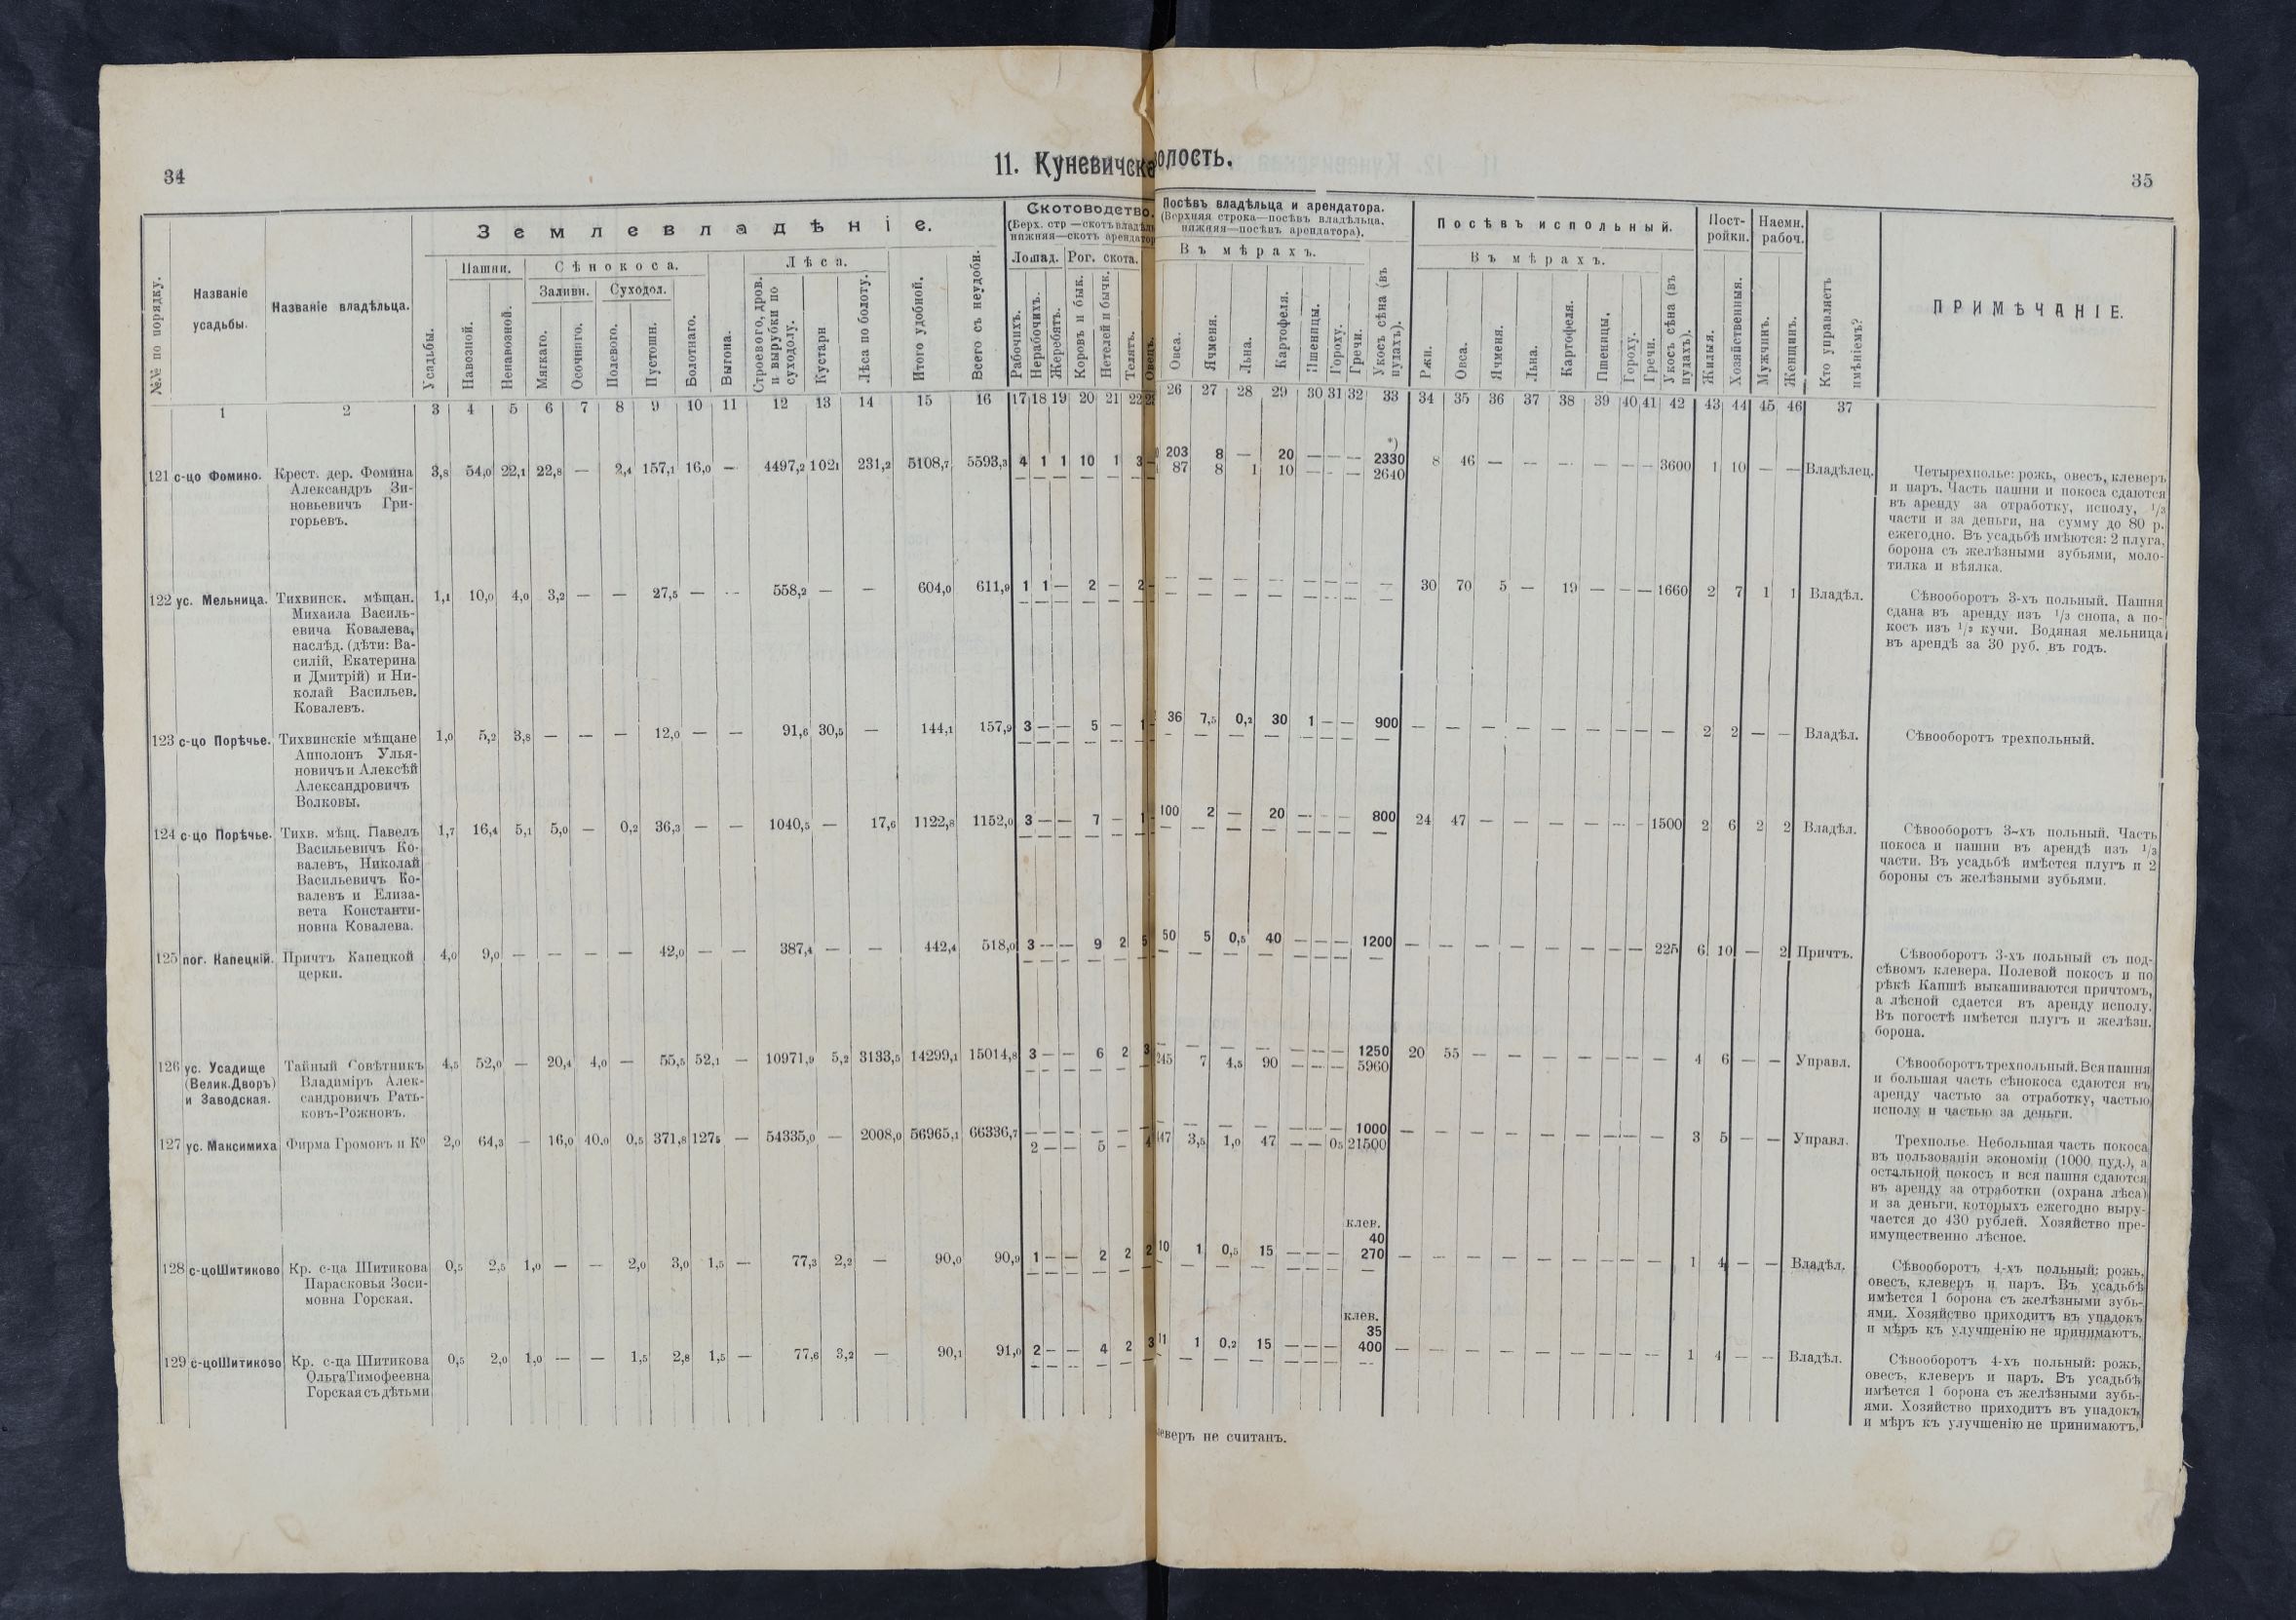 34
11. Куневичска
волость.
35
Землевладѣніе.
Скотоводство.
(Верх. стр.—скотъ владѣль
нижняя—скотъ арендатор
Посѣвъ владѣльца и арендатора.
(Верхняя строка—посѣвъ владѣльца,
нижняя—посѣвъ арендатора).
Посѣвъ испольный.
Пост-
ройки.
Наемн.
рабоч.
№№ по порядку.
Названіе
усадьбы.
Названіе владѣльца.
Усадьбы.
Пашни.
Навозной.
Ненавозной.
Сѣнокоса.
Заливн.
Мягкаго.
Осочнаго.
Суходол.
Полевого.
Пустошн.
Болотнаго.
Выгона.
Лѣса.
Строевого, дров.
и вырубки по
суходолу.
Кустарн
Лѣса по болоту.
Итого удобной.
Всего съ неудобн.
Лошад.
Рабочихъ.
Нерабочихъ.
Жеребятъ.
Рог. скота.
Коровъ и бык.
Нетелей и бычк.
Телятъ.
Овецъ.
Въ мѣрахъ.
Овса.
Ячменя.
Льна.
Картофеля.
Пшеницы.
Гороху.
Гречи.
Укосъ сѣна (въ
пудахъ).
Въ мѣрахъ.
Ржи.
Овса.
Ячменя.
Льна.
Картофеля.
Пшеницы.
Гороху.
Гречи.
Укосъ сѣна (въ
пудахъ).
Жилыя.
Хозяйственныя.
Мужчинъ.
Женщинъ.
Кто управляетъ
имѣніемъ?
ПРИМѢЧАНІЕ.
1 2 3 4 5 6 7 8 9 10 11 12 13 14 15 16 17 18 19 20 21 22
26 27 28 29 30 31 32 33 34 35 36 37 38 39 40 41 42 43 44 45 46 37
121 с-цо Фомино. Крест. дер. Фомина 3,8 54,0 22,1 22,8 — 2,4 157,1 16,0 — 4497,2 102,1 231,2 5108,7 5593,3 4 1 1 10 1 3 —
Александръ Зи-
новьевичъ Гри-
горьевъ.
*)
203 8 — 20 — — — 2330 8 46 — — — — — — 3600 1 10 — — Владѣлец.
87 8 1 10 — — — 2640
Четырехполье: рожь, овесъ, клеверъ
и паръ. Часть пашни и покоса сдаются
въ аренду за отработку, исполу, 1/3
части и за деньги, на сумму до 80 р.
ежегодно. Въ усадьбѣ имѣются: 2 плуга,
борона съ желѣзными зубьями, моло-
тилка и вѣялка.
122 ус. Мельница. Тихвинск. мѣщан. 1,1 10,0 4,0 3,2 — — 27,5 — — 558,2 — — 604,0 611,9 1 1 — 2 — 2 —
Михаила Василь-
евича Ковалева,
наслѣд. (дѣти: Ва-
силій, Екатерина
и Дмитрій) и Ни-
колай Васильев.
Ковалевъ.
— — — — — — — — 30 70 5 — 19 — — — 1660 2 7 1 1 Владѣл.
Сѣвооборотъ 3-хъ польный. Пашня
сдана въ аренду изъ 1/3 снопа, а по-
косъ изъ 1/3 кучи. Водяная мельница
въ арендѣ за 30 руб. въ годъ.
123 с-цо Порѣчье. Тихвинскіе мѣщане 1,0 5,2 3,8 — — — 12,0 — — 91,6 30,5 — 144,1 157,9 3 — — 5 — 1
Апполонъ Улья-
новичъ и Алексѣй
Александровичъ
Волковы.
36 7,5 0,2 30 1 — — 900 — — — — — — — — — 2 2 — — Владѣл.
Сѣвооборотъ трехпольный.
124 с-цо Порѣчье. Тихв. мѣщ. Павелъ 1,7 16,4 5,1 5,0 — 0,2 36,3 — — 1040,5 — 17,6 1122,8 1152,0 3 — — 7 — 1
Васильевичъ Ко-
валевъ, Николай
Васильевичъ Ко-
валевъ и Елиза-
вета Константи-
новна Ковалева.
100 2 — 20 — — — 800 24 47 — — — — — — 1500 2 6 2 2 Владѣл.
Сѣвооборотъ 3-хъ польный. Часть
покоса и пашни въ арендѣ изъ 1/3
части. Въ усадьбѣ имѣется плугъ и 2
бороны съ желѣзными зубьями.
125 пог. Капецкій. Причтъ Капецкой 4,0 9,0 — — — — 42,0 — — 387,4 — — 442,4 518,0 3 — — 9 2 5
церкн.
50 5 0,5 40 — — — 1200 — — — — — — — — 225 6 10 — 2 Причтъ.
Сѣвооборотъ 3-хъ польный съ под-
сѣвомъ клевера. Полевой покосъ и по
рѣкѣ Капшѣ выкашиваются причтомъ,
а лѣсной сдается въ аренду исполу.
Въ погостѣ имѣется плугъ и желѣзн.
борона.
126 ус. Усадище Тайный Совѣтникъ 4,5 52,0 — 20,4 4,0 — 55,5 52,1 — 10971,9 5,2 3133,5 14299,1 15014,8 3 — — 6 2 3
(Велик.Дворъ) Владиміръ Алек-
и Заводская. сандровичъ Рать-
ковъ-Рожновъ.
— — — — — — — 1250 20 55 — — — — — — — 4 6 — — Управл.
245 7 4,5 90 — — — 5960
Сѣвооборотъ трехпольный. Вся пашня
и большая часть сѣнокоса сдаются въ
аренду частью за отработку, частью
исполу и частью за деньги.
127 ус. Максимиха Фирма Громовъ и Ко 2,0 64,3 — 16,0 40,0 0,5 371,8 127,5 — 54335,0 — 2008,0 56965,1 66336,7 — — — — — —
2 — — 5 — 4
— — — — — — — 1000 — — — — — — — — — 3 5 — — Управл.
447 3,5 1,0 47 — — 0,5 21500
Трехполье. Небольшая часть покоса
въ пользованіи экономіи (1000 пуд.), а
остальной покосъ и вся пашня сдаются
въ аренду за отработки (охрана лѣса)
и за деньги, которыхъ ежегодно выру-
чается до 430 рублей. Хозяйство пре-
имущественно лѣсное.
128 с-цо Шитиково Кр. с-ца Шитикова 0,5 2,5 1,0 — — 2,0 3,0 1,5 — 77,3 2,2 — 90,0 90,9 1 — — 2 2 2
Парасковья Зоси-
мовна Горская.
клев.
40
10 1 0,5 15 — — — 270 — — — — — — — — — 1 4 — — Владѣл.
Сѣвооборотъ 4-хъ польный: рожь,
овесъ, клеверъ и паръ. Въ усадьбѣ
имѣется 1 борона съ желѣзными зубь-
ями. Хозяйство приходитъ въ упадокъ
и мѣръ къ улучшенію не принимаютъ.
129 с-цо Шитиково Кр. с-ца Шитикова 0,5 2,0 1,0 — — 1,5 2,8 1,5 — 77,6 3,2 — 90,1 91,0 2 — — 4 2 3
Ольга Тимофеевна
Горская съ дѣтьми
клев.
35
11 1 0,2 15 — — — 400 — — — — — — — — — 1 4 — — Владѣл.
Сѣвооборотъ 4-хъ польный: рожь,
овесъ, клеверъ и паръ. Въ усадьбѣ
имѣется 1 борона съ желѣзными зубь-
ями. Хозяйство приходитъ въ упадокъ
и мѣръ къ улучшенію не принимаютъ.
леверъ не считанъ.